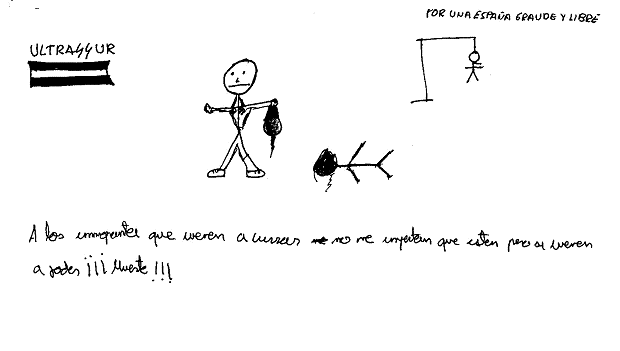 POR UNA ESPAÑA GRANDE Y LIBRE
ULTRAϟϟUR
A los inmigrantes que vienen a currar no me importan que esten pero si vienen
a joder ¡¡¡Muerte!!!